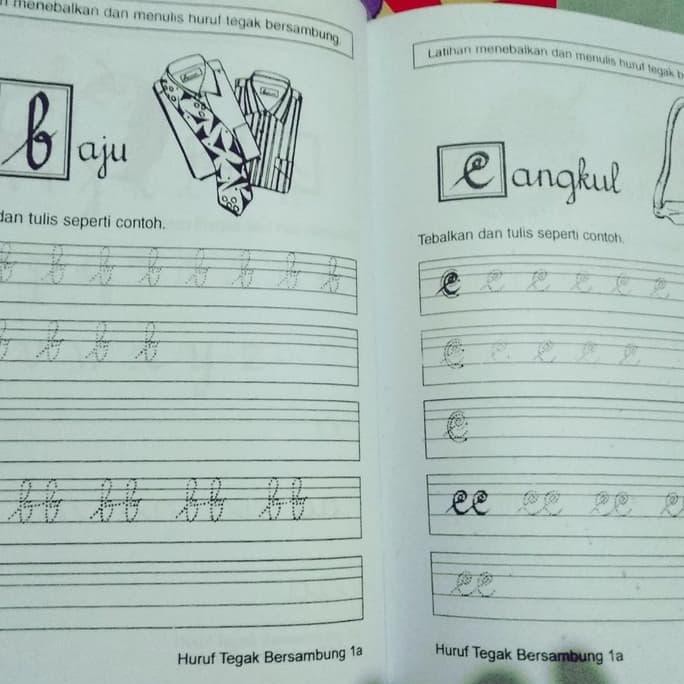 menebalkan dan menulis huruf tegak bersambung.
baju
dan tulis seperti contoh.
b b b b b b b b
b b b b
bb bb bb bb
Huruf Tegak Bersambung 1a
Latihan menebalkan dan menulis huruf tegak
cangkul
Tebalkan dan tulis seperti contoh.
c c c c c c
c c c c c
c
cc cc cc c
cc
Huruf Tegak Bersambung 1a